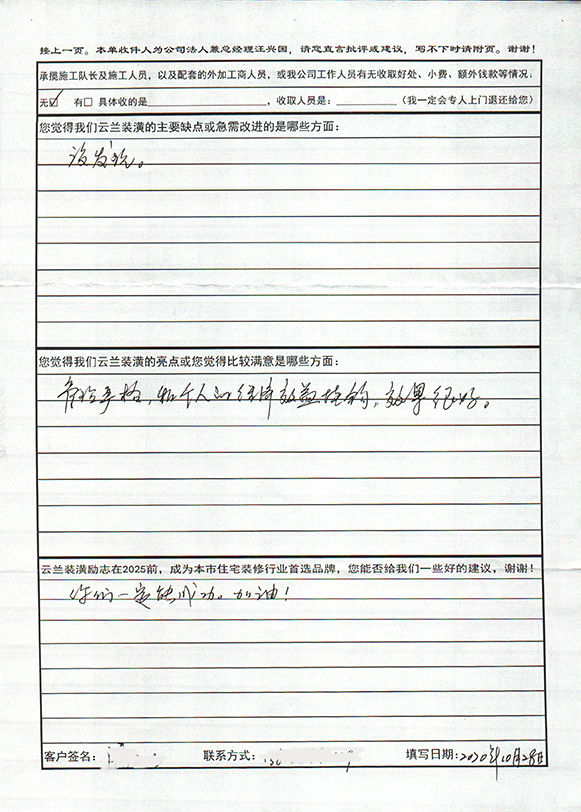 接上一页。本单收件人为公司法人兼总经理汪兴国，请您直言批评或建议，写不下时请附页。谢谢！
承揽施工队长及施工人员，以及配套的外加工商人员，或我公司工作人员有无收取好处、小费、额外钱款等情况：
无☑ 有□ 具体收的是____________________，收取人员是：__________（我一定会专人上门退还给您）
您觉得我们云兰装潢的主要缺点或急需改进的是哪些方面：
没发现。
您觉得我们云兰装潢的亮点或您觉得比较满意是哪些方面：
管理严格，和个人的经济效益挂钩，效果很好。
云兰装潢励志在2025前，成为本市住宅装修行业首选品牌，您能否给我们一些好的建议，谢谢！
你们一定能成功。加油！
客户签名： 联系方式： 填写日期：2020年10月28日